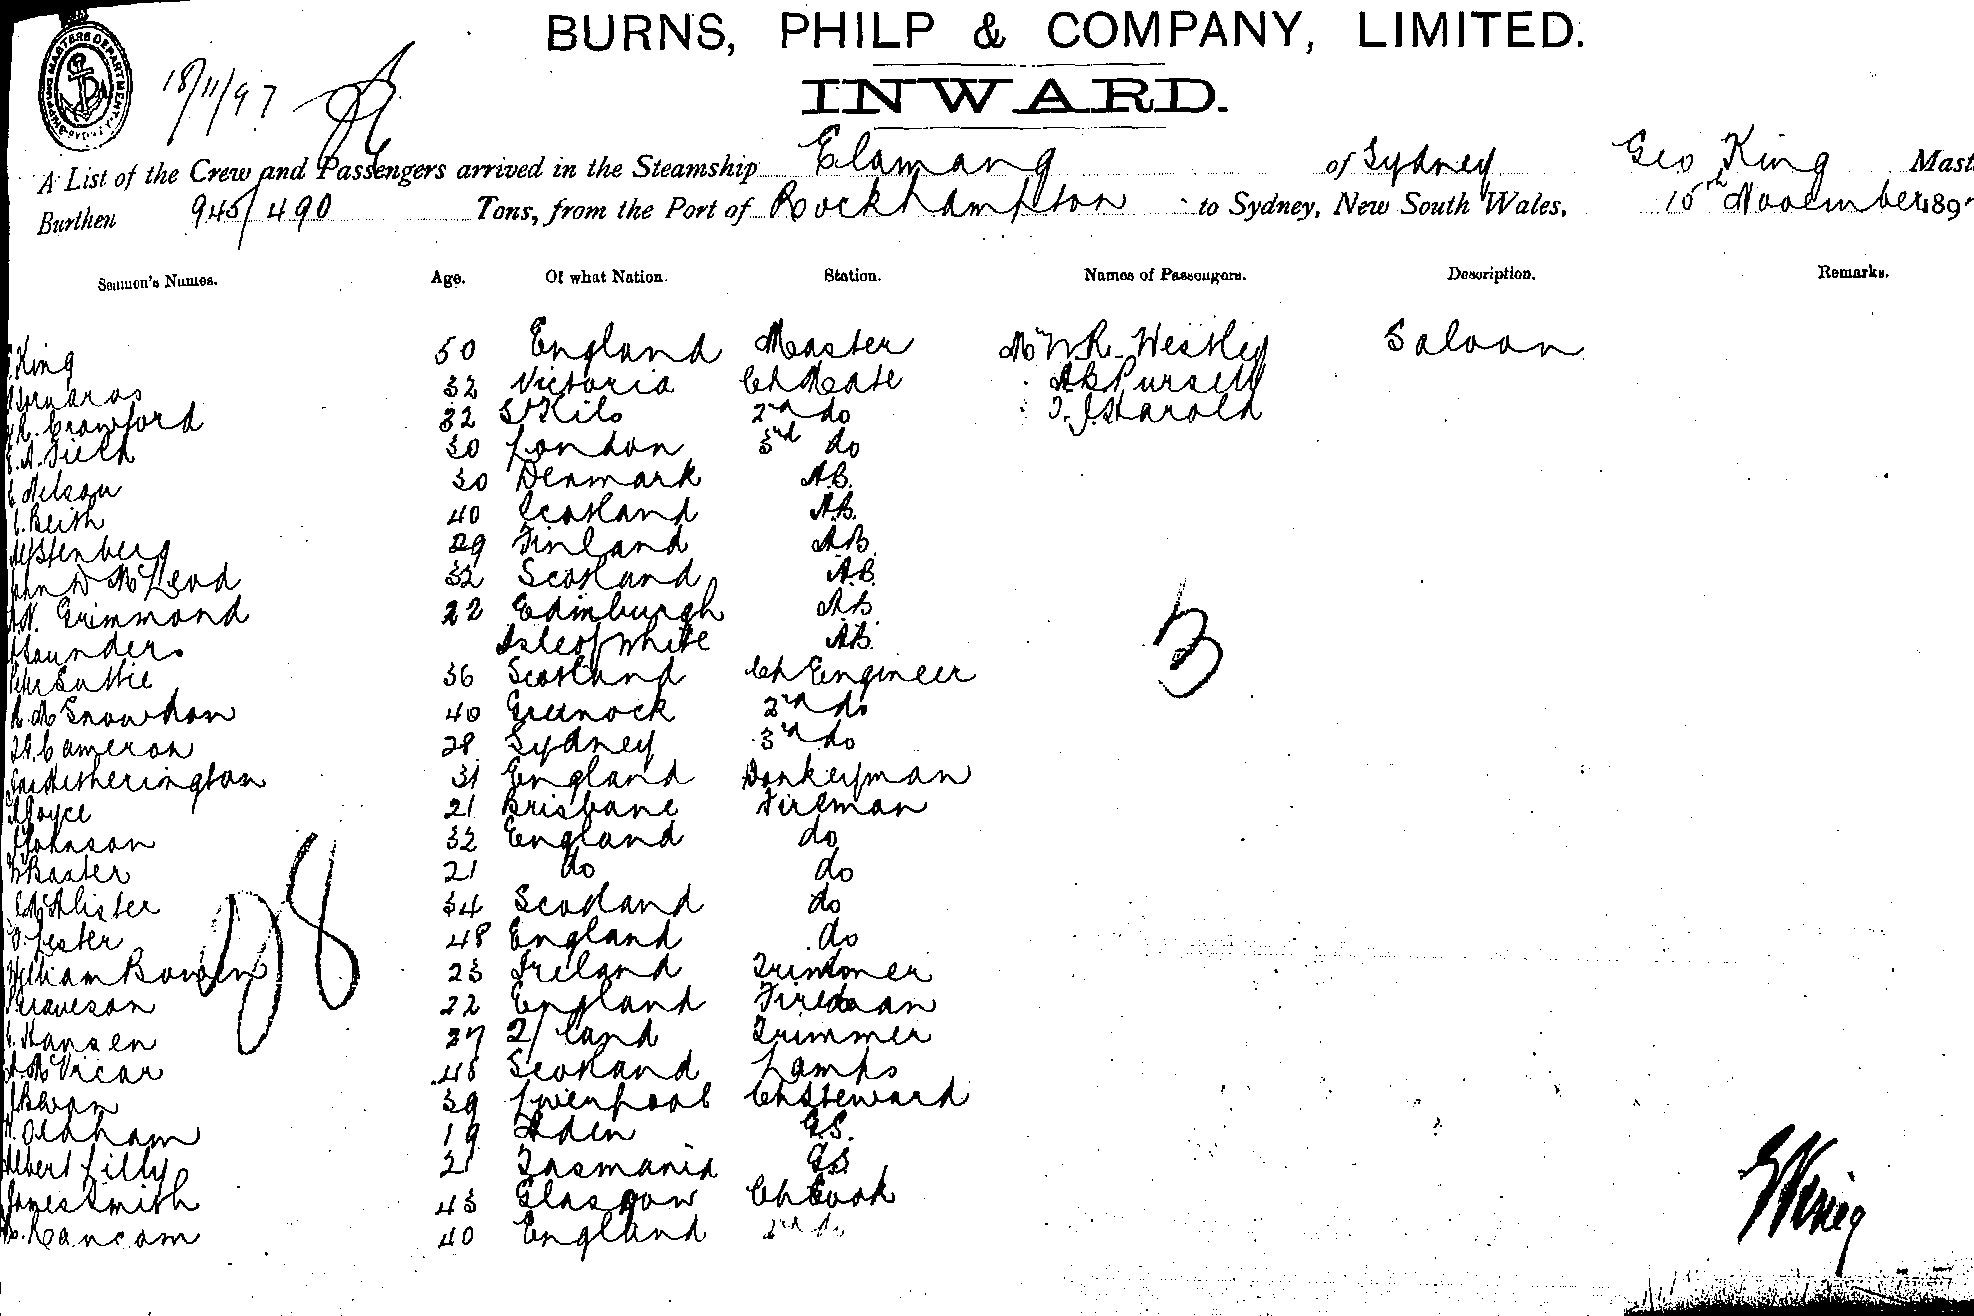 BURNS, PHILP & COMPANY, LIMITED.
INWARD.
18/11/97
A List of the Crew and Passengers arrived in the Steamship Elamang of Sydney Geo King Mast
Burthen 945/490 Tons, from the Port of Rockhampton to Sydney, New South Wales, 15th November 189
Seamen's Names. Age. Of what Nation. Station. Names of Passengers. Description. Remarks.
King 50 England Master Mr W R Westley Saloon
32 Victoria Ch Mate Pursell
Crawford 32 St Kilo 2nd do Harold
A. Field 30 London 3rd do
Nelson 30 Denmark A.B.
Beith 40 Scotland A.B.
Stenberg 29 Finland A.B.
John D McLeod 32 Scotland A.B.
Grimmond 22 Edinburgh A.B.
Saunders Isle of White A.B.
Peter Suttie 36 Scotland Ch Engineer
Snowdon 40 Greenock 2nd do
Cameron 28 Sydney 3rd do
Hetherington 31 England Donkeyman
Joyce 21 Brisbane Fireman
Johnson 32 England do
Baxter 21 do do
McAlister 34 Scotland do
Lester 48 England do
William Bowen 23 Ireland Trimmer
Graveson 22 England Fireman
Hansen 27 land Trimmer
McVicar 45 Scotland Lamps
Bevan 39 Liverpool Ch Steward
Oldham 19 Aden G.S.
Albert Lilly 21 Tasmania G.S.
James Smith 43 Glasgow Ch Cook
Rancom 40 England 2nd do
28
3
G King